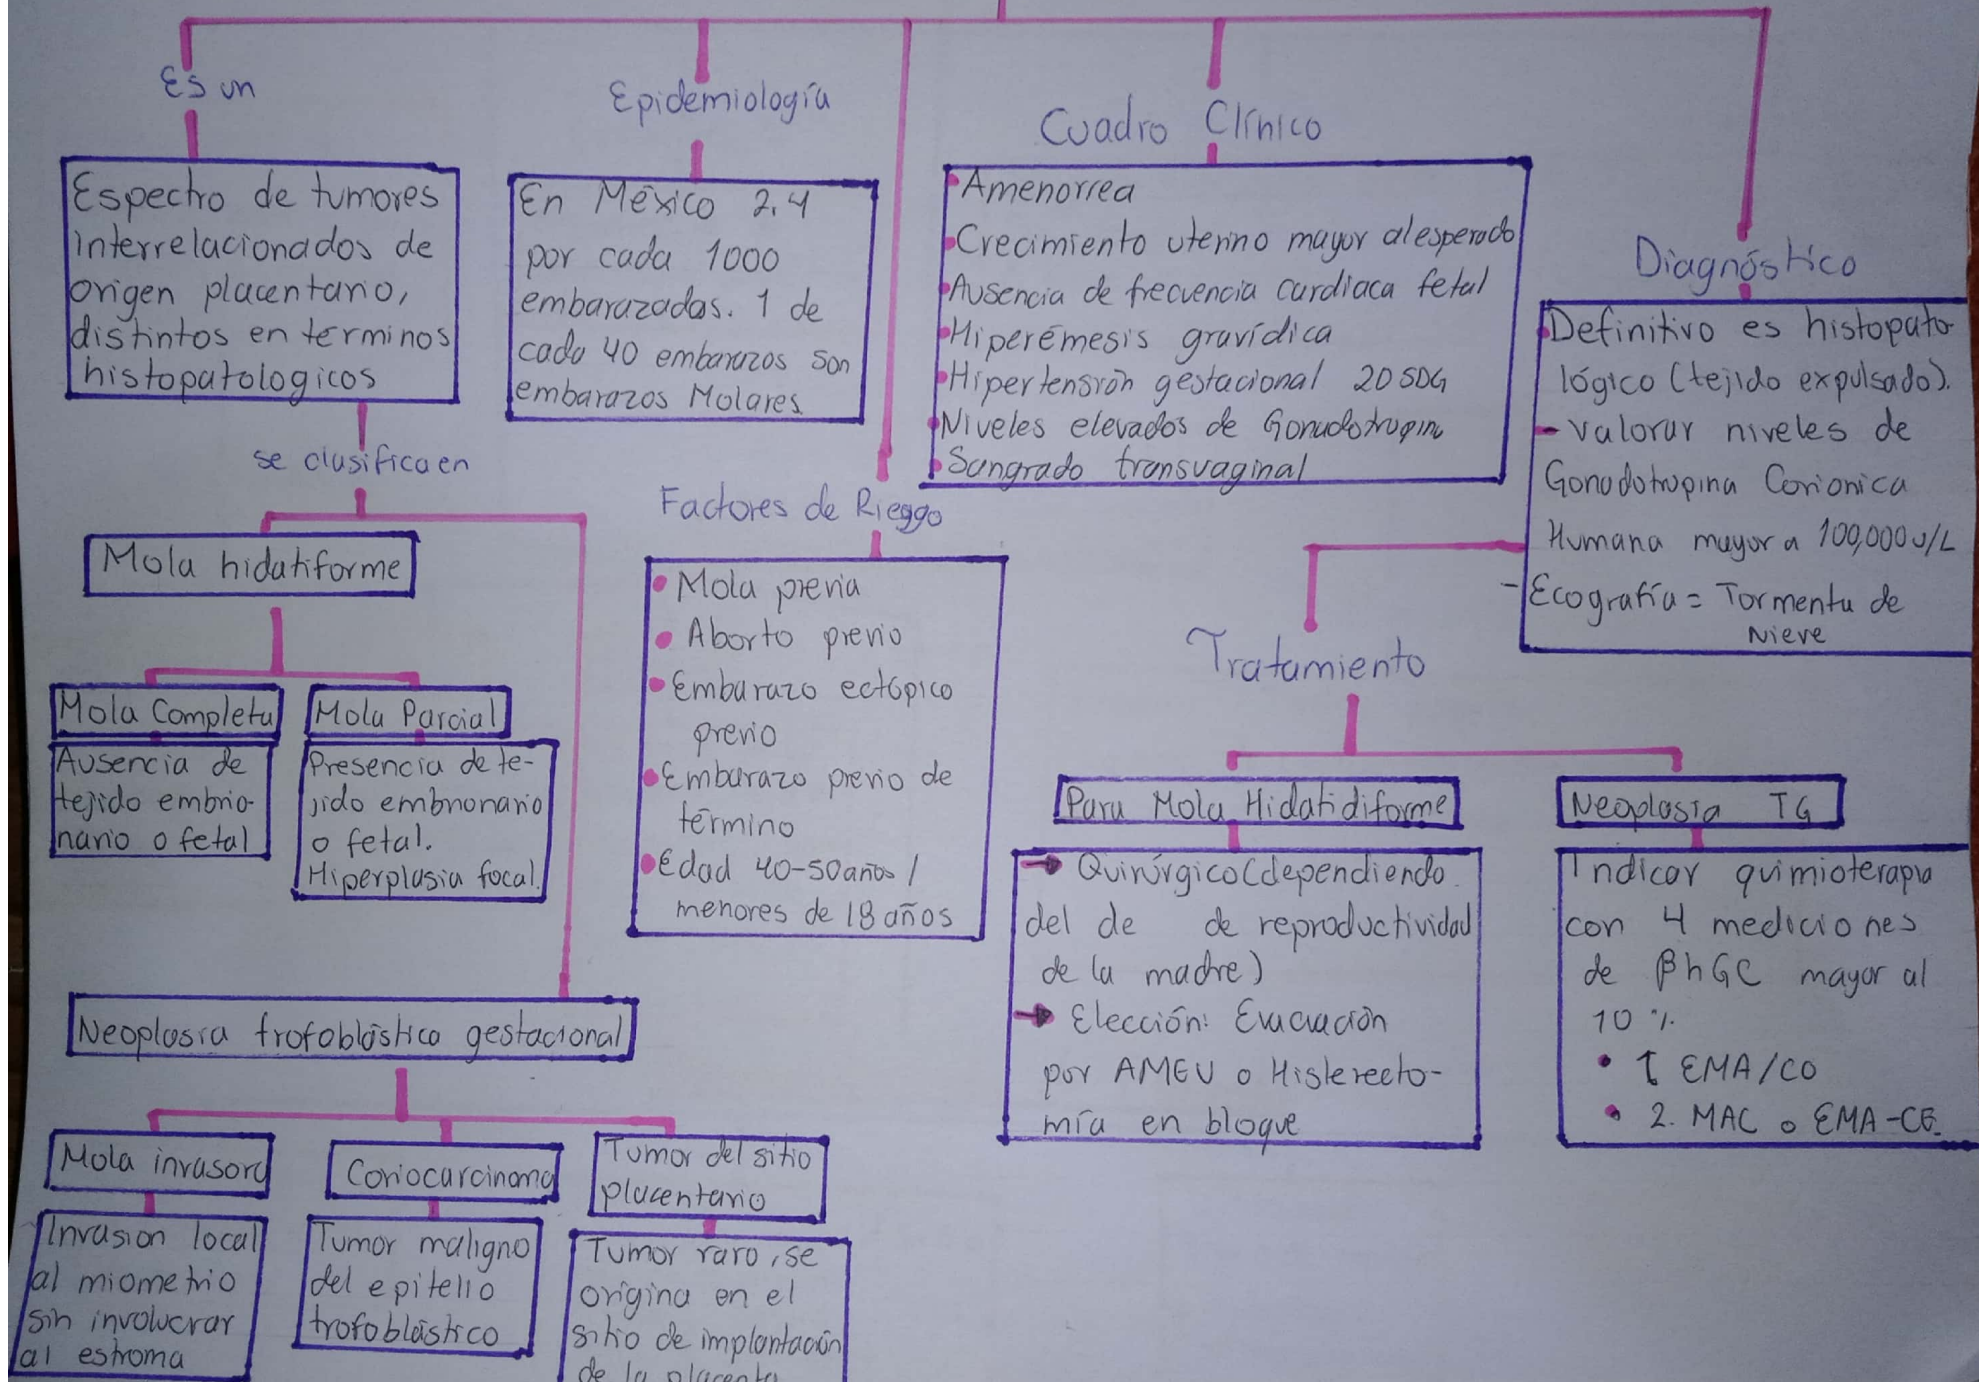 Es un
Espectro de tumores
interrelacionados de
origen placentario,
distintos en terminos
histopatologicos
se clasifica en
Mola hidatiforme
Mola Completa
Ausencia de
tejido embrio-
nario o fetal
Mola Parcial
Presencia de te-
jido embrionario
o fetal.
Hiperplasia focal.
Neoplasia trofoblástica gestacional
Mola invasora
Invasion local
al miometrio
sin involucrar
al estroma
Coriocarcinoma
Tumor maligno
del epitelio
trofoblástico
Tumor del sitio
placentario
Tumor raro, se
origina en el
sitio de implantación
de la placenta
Epidemiología
En México 2.4
por cada 1000
embarazadas. 1 de
cada 40 embarazos son
embarazos Molares
Factores de Rieggo
• Mola previa
• Aborto previo
• Embarazo ectópico
previo
• Embarazo previo de
término
• Edad 40-50 años /
menores de 18 años
Cuadro Clínico
• Amenorrea
• Crecimiento uterino mayor al esperado
• Ausencia de frecuencia cardiaca fetal
• Hiperémesis gravídica
• Hipertensión gestacional 20 SDG
• Niveles elevados de Gonadotropina
• Sangrado transvaginal
Diagnóstico
• Definitivo es histopato
lógico (tejido expulsado).
- Valorar niveles de
Gonodotropina Corionica
Humana mayor a 100,000 u/L
- Ecografía = Tormenta de
Nieve
Tratamiento
Para Mola Hidatidiforme
→ Quirúrgico (dependiendo
del de de reproductividad
de la madre)
→ Elección: Evacuación
por AMEU o Histerecto-
mía en bloque
Neoplasia TG
Indicar quimioterapia
con 4 mediciones
de βhGC mayor al
10 %
• 1 EMA/CO
• 2. MAC o EMA-CE.